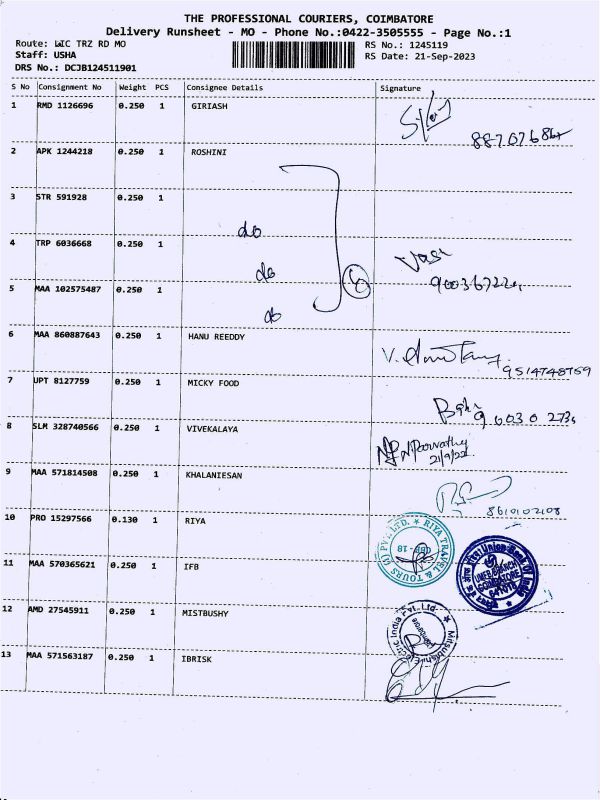 THE PROFESSIONAL COURIERS, COIMBATORE
Delivery Runsheet - MO - Phone No.:0422-3505555 - Page No.:1
Route: LIC TRZ RD MO RS No.: 1245119
Staff: USHA RS Date: 21-Sep-2023
DRS No.: DCJB124511901
S No Consignment No Weight PCS Consignee Details Signature
1 RMD 1126696 0.250 1 GIRIASH
2 APK 1244218 0.250 1 ROSHINI
3 STR 591928 0.250 1
do
4 TRP 6036668 0.250 1
do
Vasi
5 MAA 102575487 0.250 1
do
6 MAA 860887643 0.250 1 HANU REEDDY
9514748759
7 UPT 8127759 0.250 1 MICKY FOOD
8 SLM 328740566 0.250 1 VIVEKALAYA
N Parvathy
9 MAA 571814508 0.250 1 KHALANIESAN
8610102108
10 PRO 15297566 0.130 1 RIYA
RIYA TRAVEL & TOURS (I) PVT. LTD.
CBE - 18
11 MAA 570365621 0.250 1 IFB
Union Bank Of India
COIMBATORE
12 AMD 27545911 0.250 1 MISTBUSHY
Mitsubishi Electric India Pvt. Ltd.
Coimbatore
13 MAA 571563187 0.250 1 IBRISK